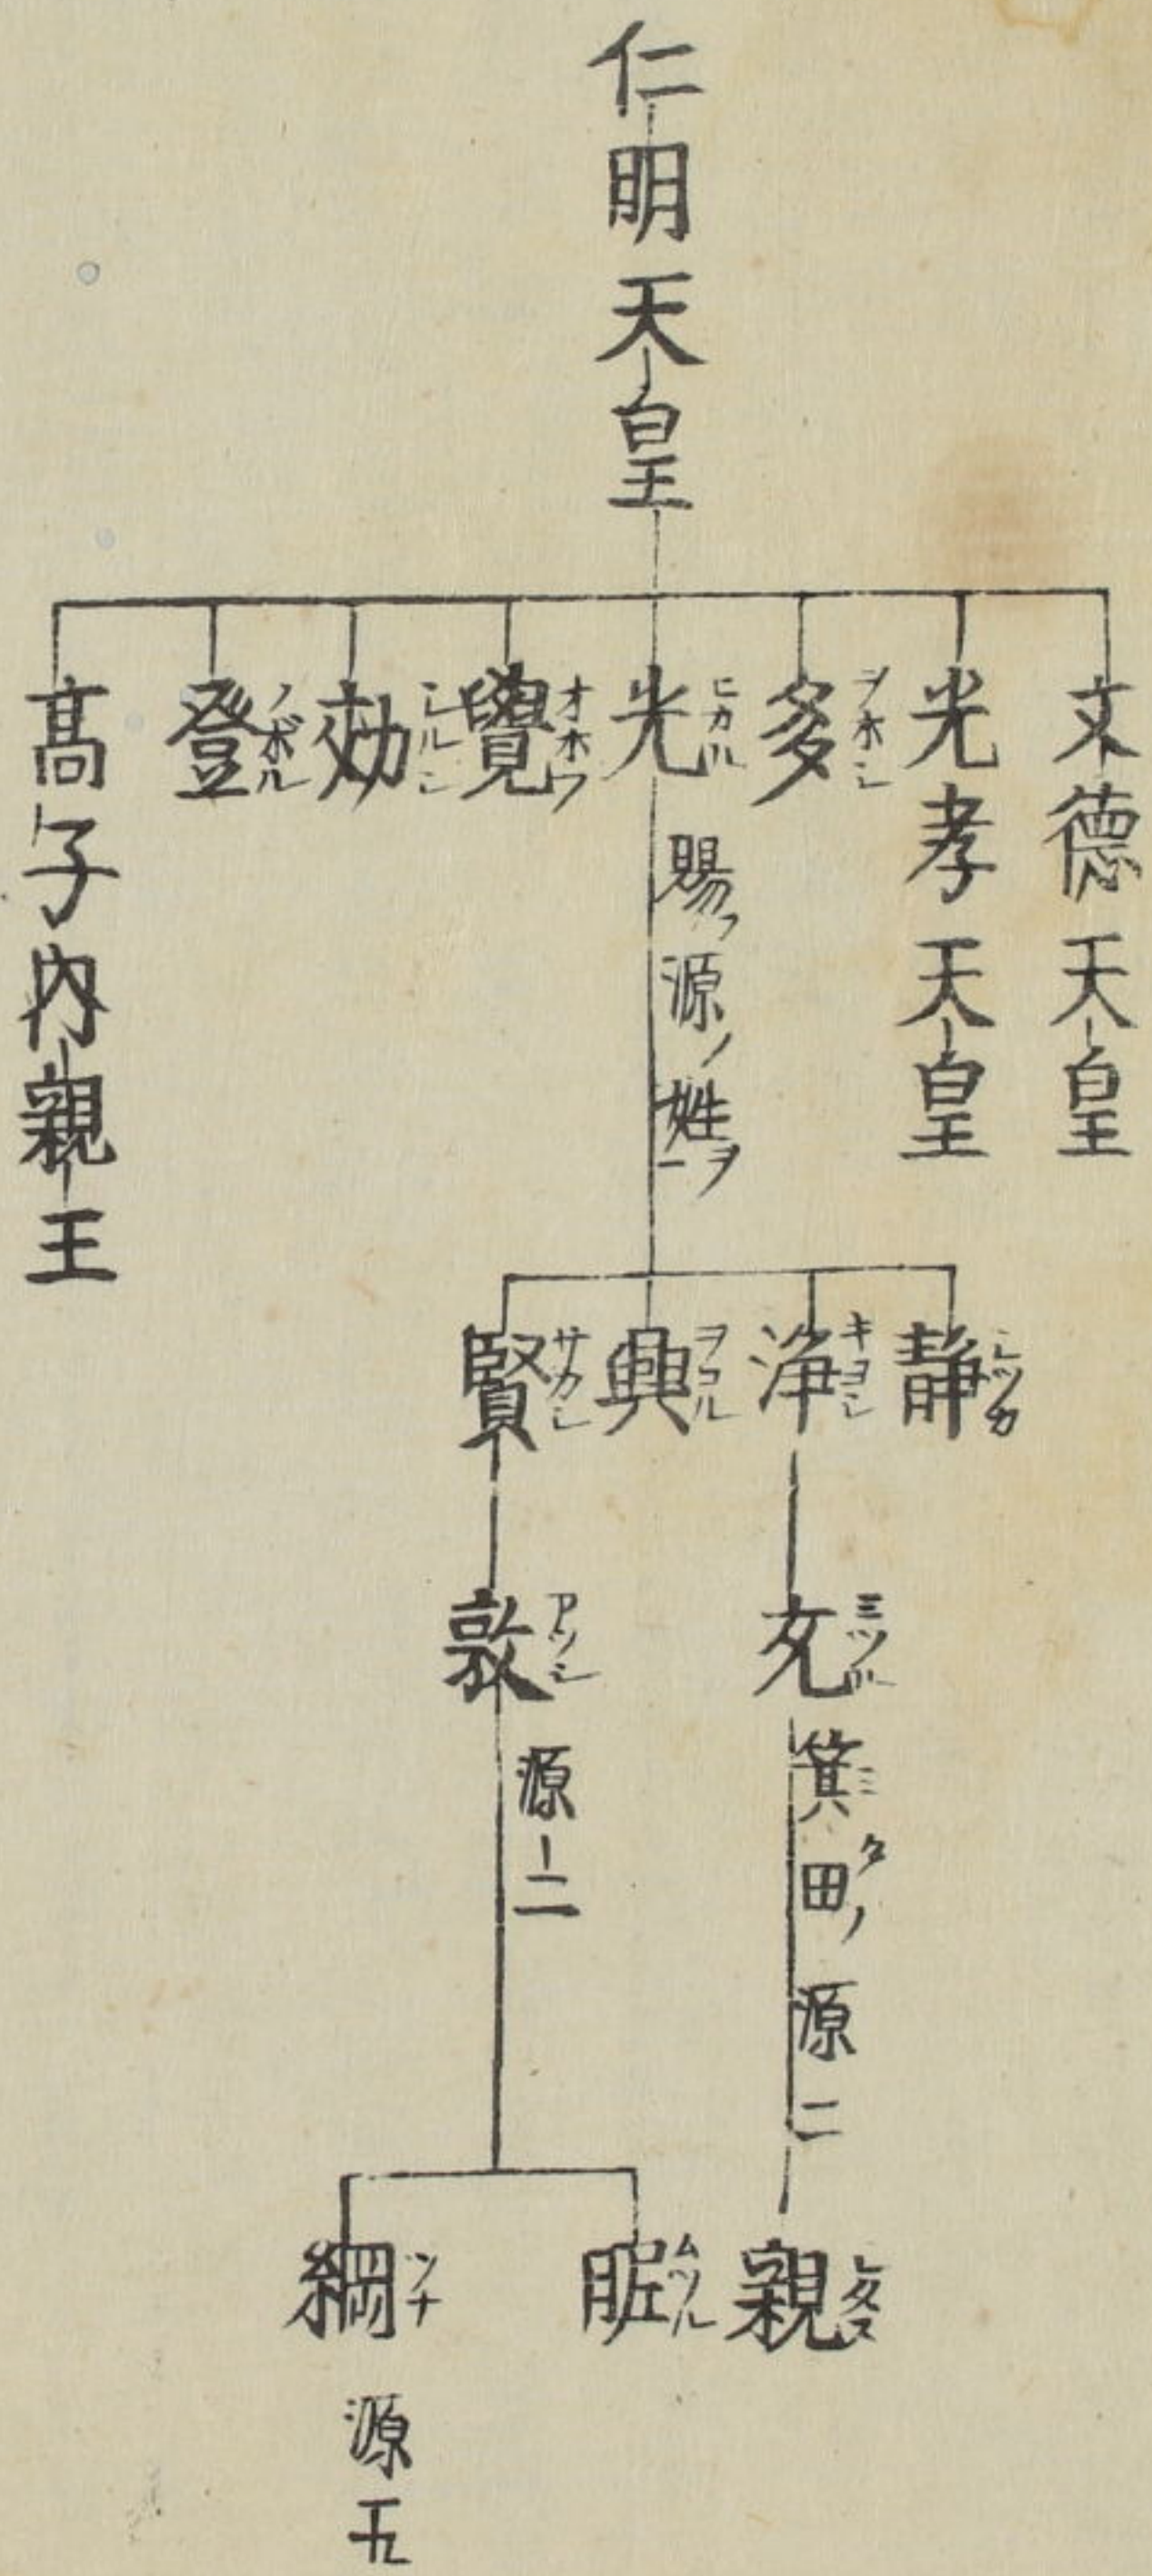 仁明天皇
文德天皇
光孝天皇
多 ヲホシ
光 ヒカル
賜フ源ノ姓ヲ一
覺 オホフ
効 シルシ
登 ノボル
髙子內親王
静 シツカ
浄 キヨシ
興 ヲコル
賢 サカシ
充 ミツル
箕田ノ源二 ミタ
敦 アツシ
源二
親 シタス
眤 ムツル
綱 ツナ
源五